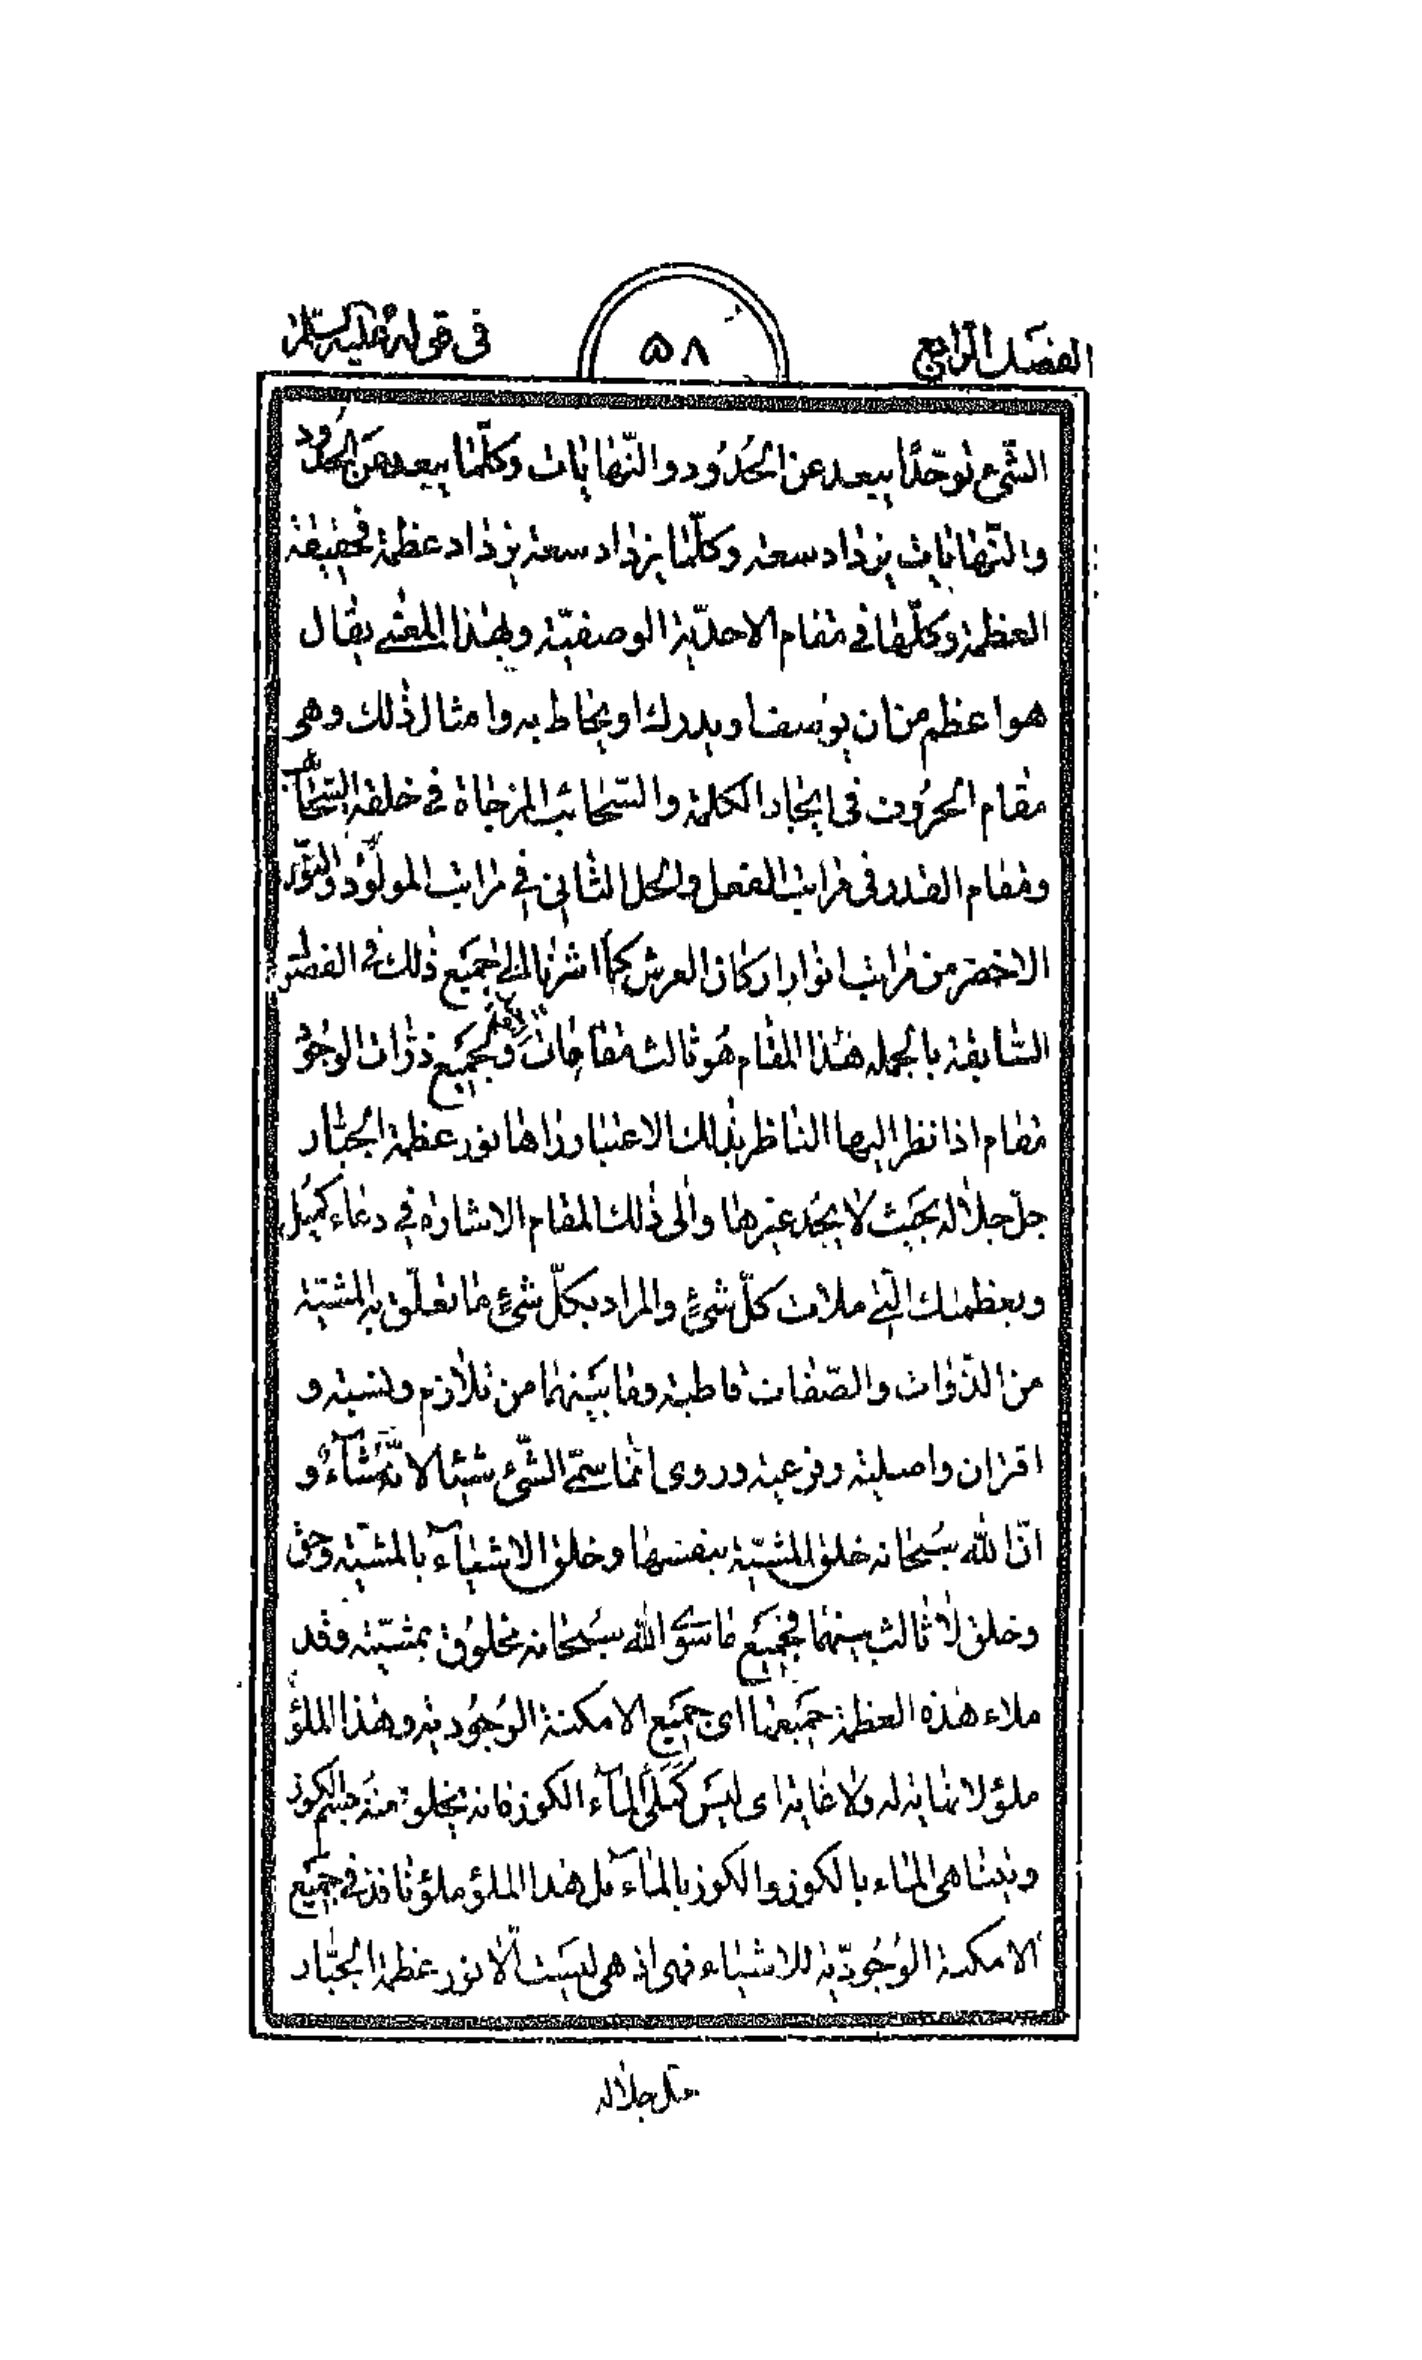 الفصل الرابع
٥٨
فى قوله عليه السلام
الشئ توحّدًا يبعد عن الحُدُود والنّهايات وكلّما يبعد عن الحدُود
والنّهايات يزداد سعة وكلّما يزداد سعة يزداد عظمة فحقيقة
العظمة وكلّها فى مقام الاحديّة الوصفيّة وبهذا المعنى يقال
هو اعظم من ان يوصف او يدرك او يحاط به وامثال ذلك وهو
مقام الحرُوف فى ايجاد الكلمة والسّحائب المزجاة فى خلقة السّحاب
ومقام القدر فى مراتب الفعل والحل الثانى فى مراتب المولود والنّور
الاخضر من مراتب انوار اركان العرش كما اشرنا الى جميع ذلك فى الفصل
السّابقة بالجملة هذا المقام هُو ثالث مقامات ولجميع ذرّات الوجود
مقام اذا نظر اليها الناظر بذلك الاعتبار راها نور عظمة الجبّار
جلّ جلاله بحيث لا يجد غيرها والى ذلك المقام الاشارة فى دعاء كميل
وبعظمتك الّتى ملات كلّ شئٍ والمراد بكلّ شئٍ ما تعلّق به المشيّة
من الذّوات والصّفات قاطبة وما بينهما من تلازم ونسبة و
اقتران واصلية وفرعية وروى انّما سمّى الشّئ شيئا لانّه مُشآءٌ و
انّ الله سبحانه خلق المشيّة بنفسها وخلق الاشيآء بالمشيّة وحق
وخلق لا ثالث بينهما فجميع ما سوى الله سُبحانه مخلوق بمشيّته وقد
ملاء هذه العظمة جميعها اى جميع الامكنة الوجُودية وهذا الملؤ
ملؤ لا نهاية له ولا غاية اى ليس كملئ المآء الكوز فانه يخلو منه جسم الكوز
ويتناهى الماء بالكوز والكوز بالمآء بل هذا الملؤ ملؤ نافذ فى جميع
الامكنة الوُجُوديّة للاشياء فهى اذ هى ليست الّا نور عظمة الجبّار
جلّ جلاله